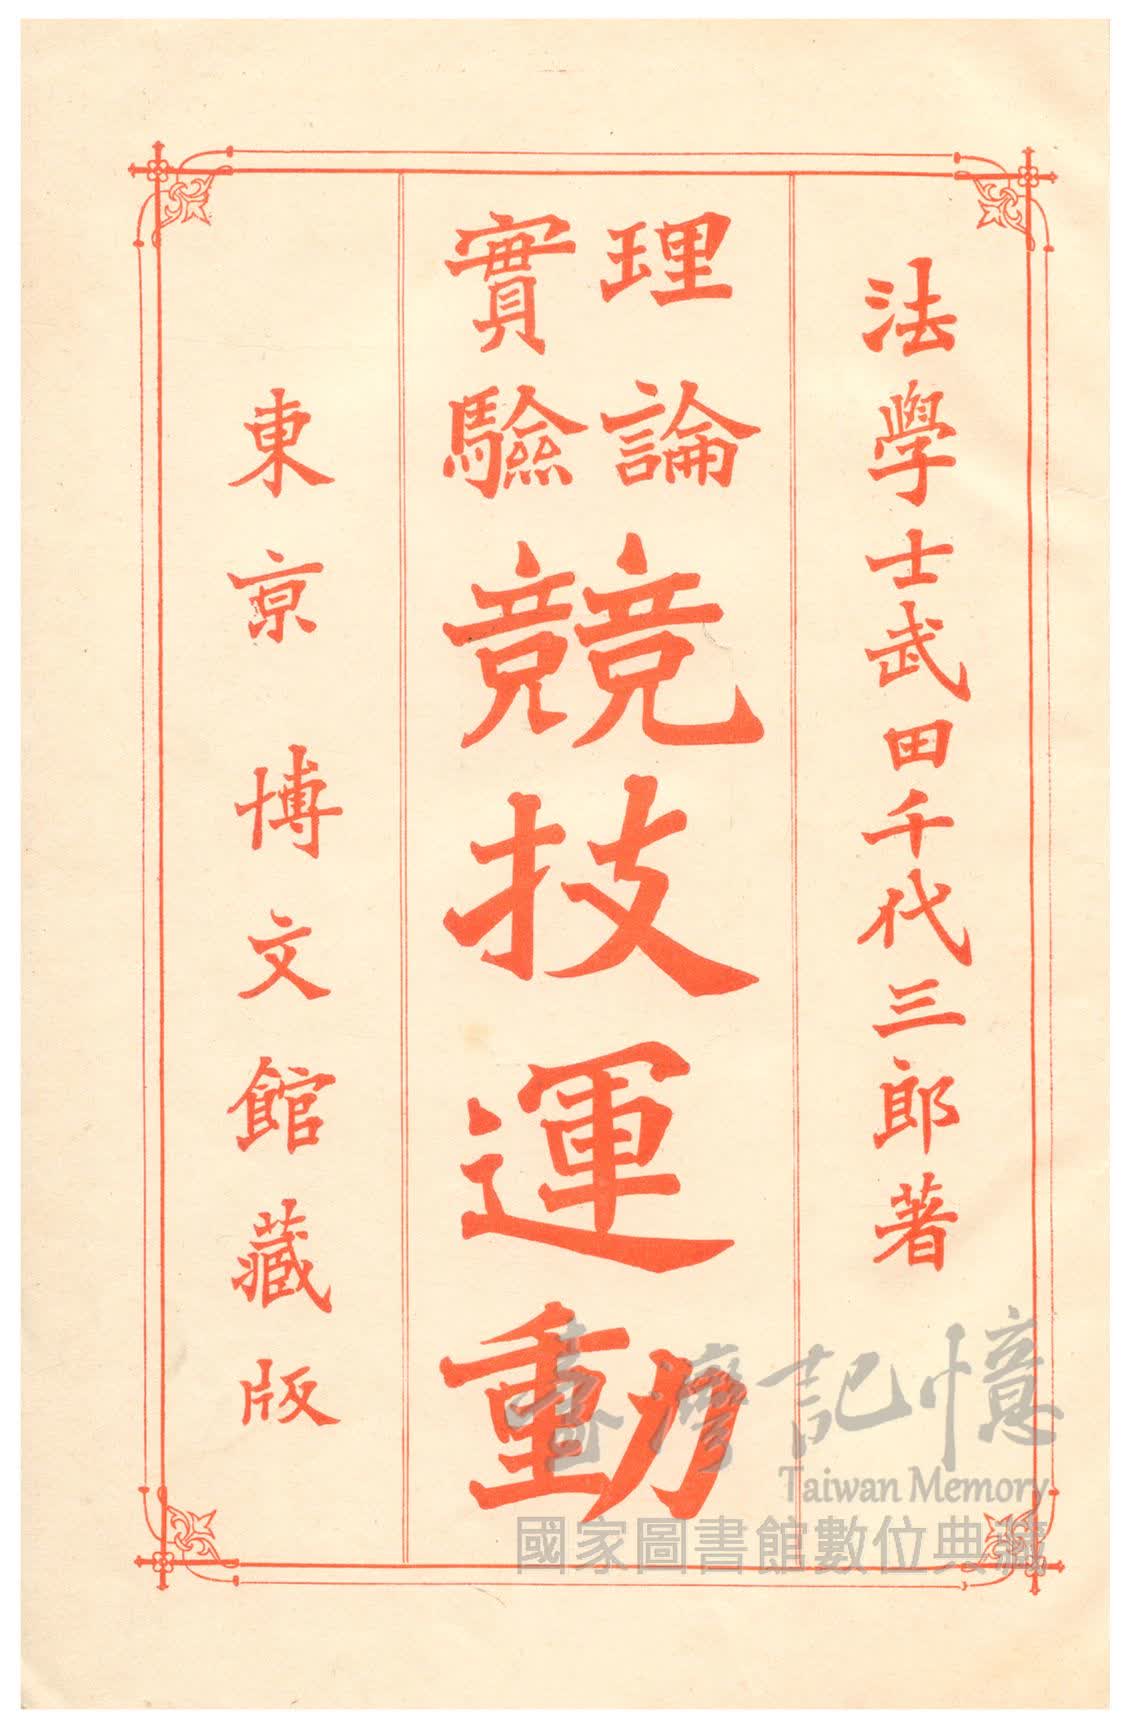 法學士武田千代三郎著
理論
實驗
競技運動
東京 博文館藏版
臺灣記憶
Taiwan Memory
國家圖書館數位典藏